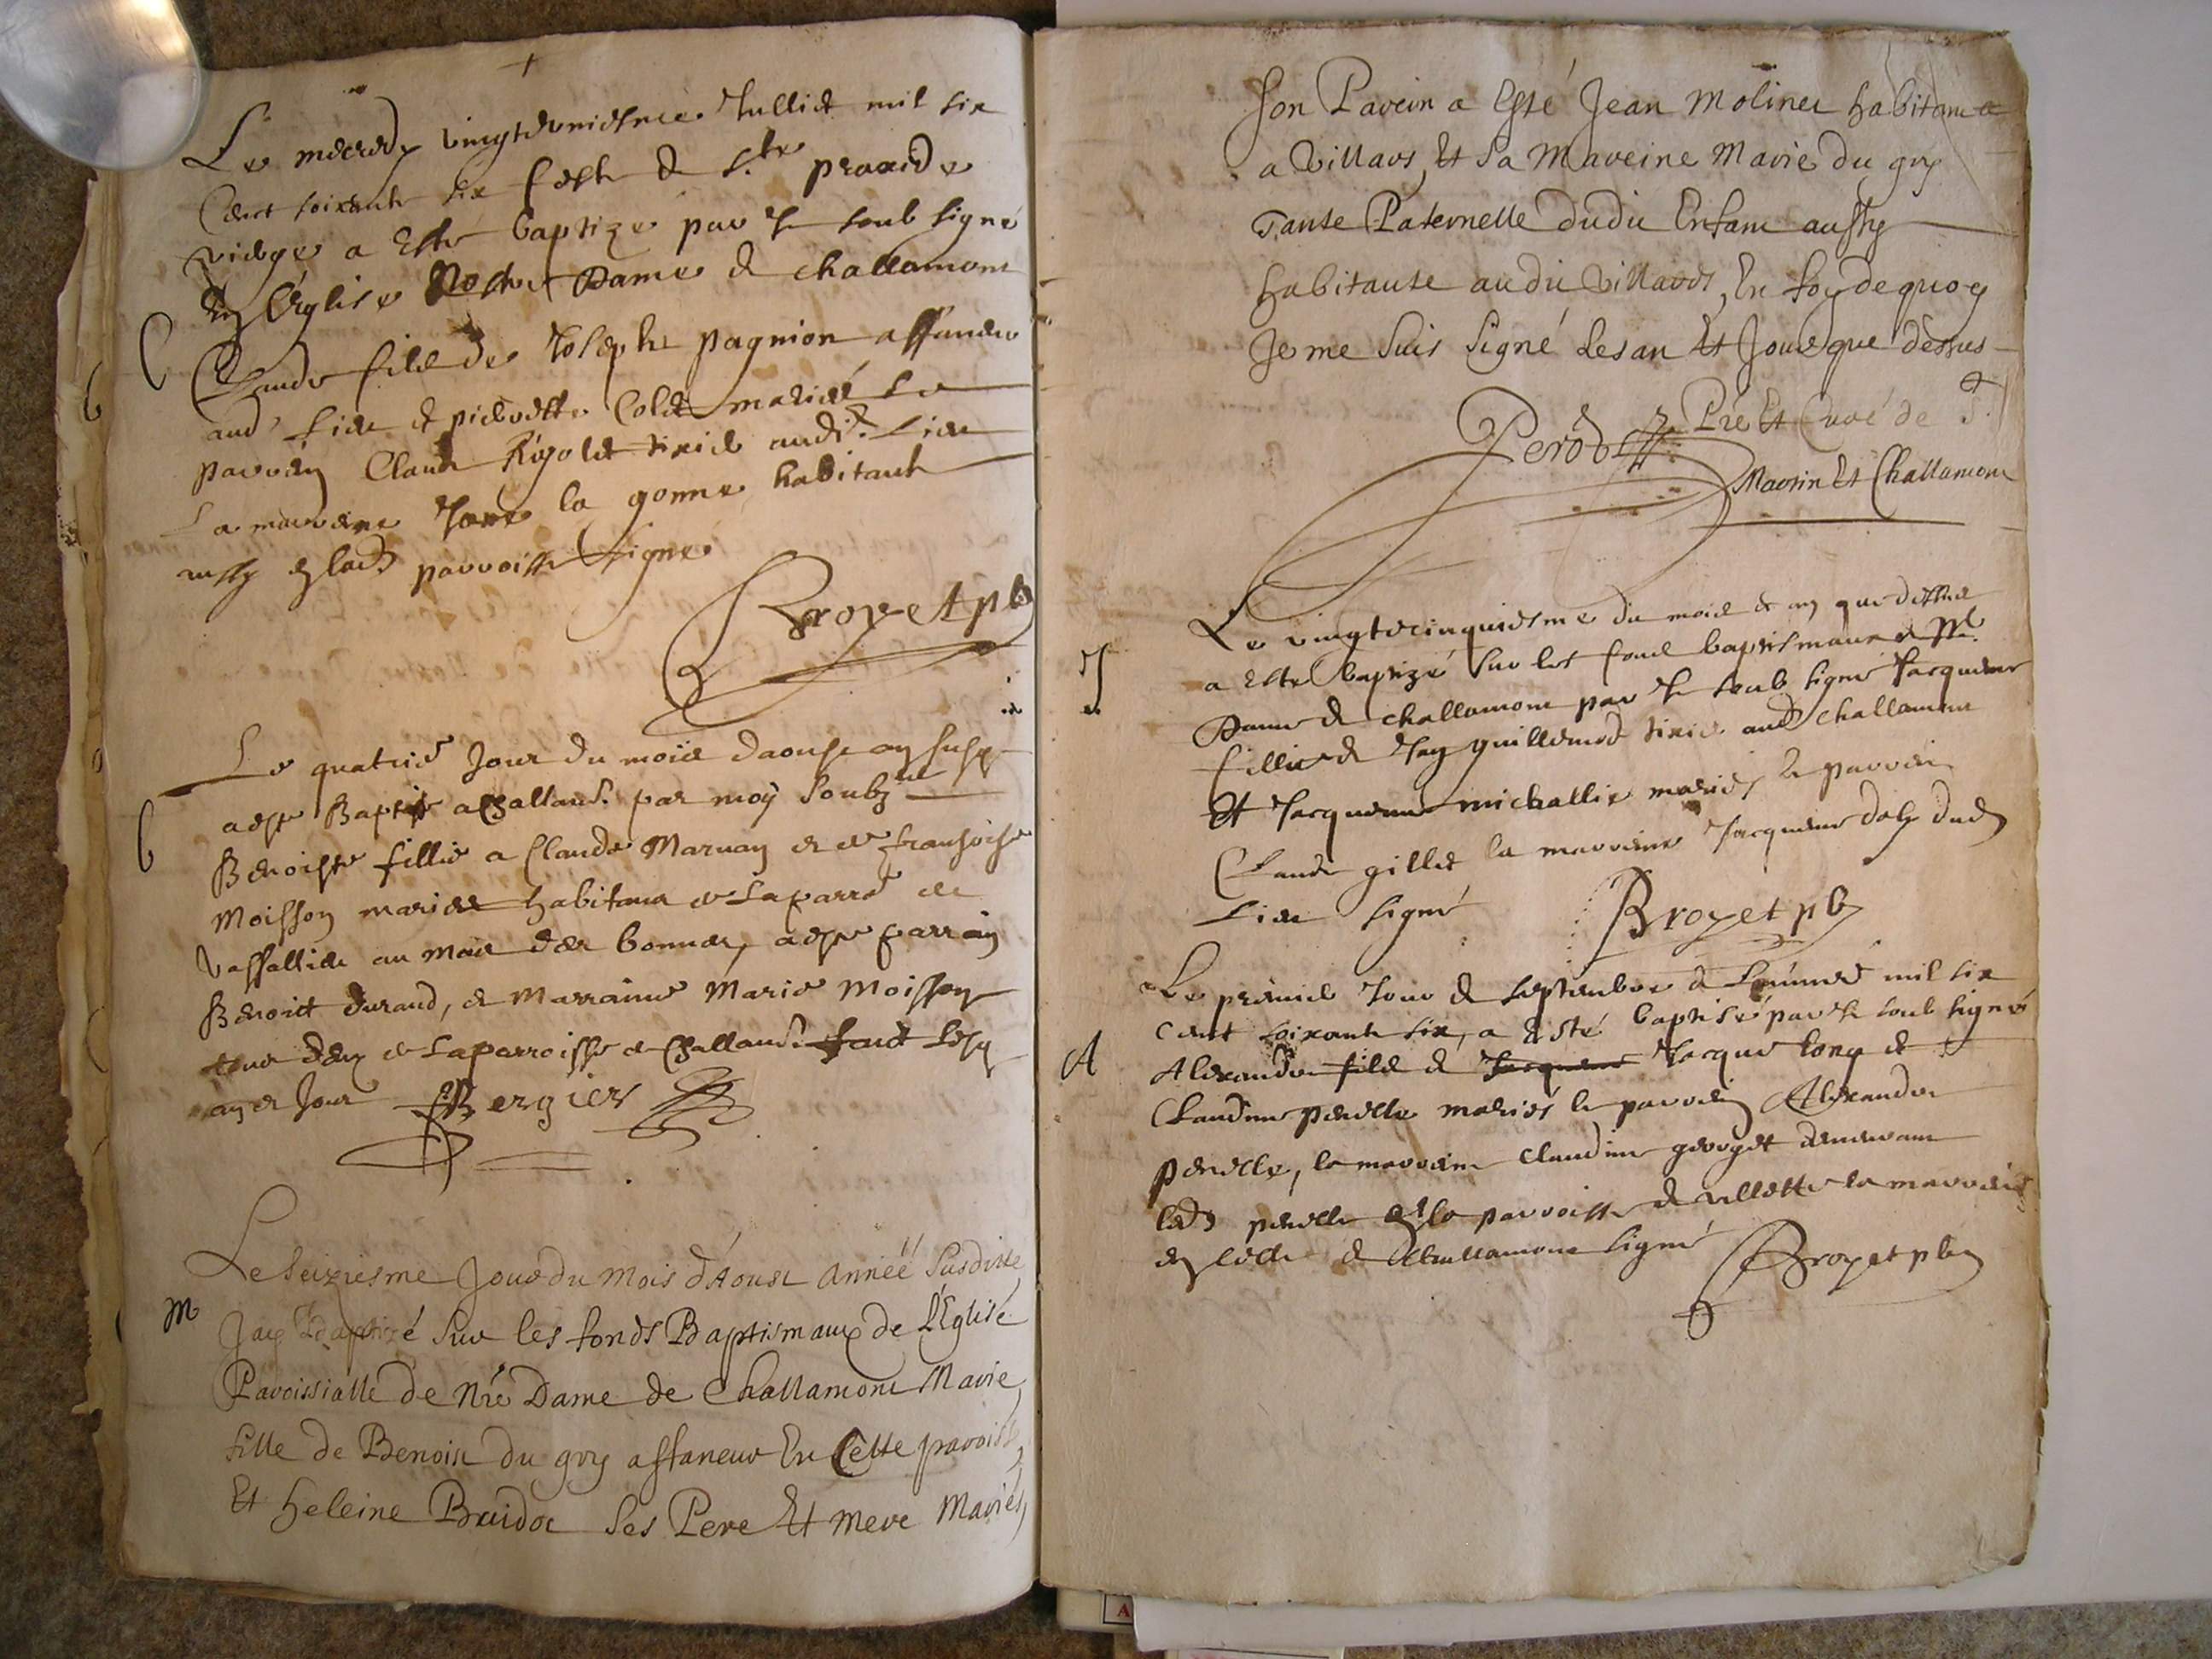 Le mecredy vingtevniesme Jullict mil six
Cent soixante six feste de S.te praxide
vierge a Esté baptize par Je soub signé
En l'Eglise Nostre Dame de challamont
C
Claude filz de Joseph pagnion affaneur
aud. Lieu et pierrette Colet mariés Le
parrein Claude Rigolet tixier audit. Lieu
La marreine Jane la gonne habitante
aussy en lad. parroisse Signé
Broyet pb
Le quatrie Jour du mois daoust an susd
B
a este Baptise a Challand. par moy soubz.ne
Benoiste fillie a Claude Maruay et de fransoise
Moisson maries habitans de Laparre de
Vassallieu au Mas des bonnes, a este parrain
Benoict Durand, et Marraine Marie Moisson
tous deux de Laparroisse de Challand. faict Lesd
an et Jour Bergier
Le Seiziesme Jour du Mois d'Aoust Année Susditte
M
J'ay Baptizé sur les fonds Baptismaux de L'Eglise
Paroissialle de Nre Dame de Challamont Marie
fille de Benoist du guy affaneur En Cette paroisse
Et heleine Bridot ses Pere Et mere Mariés
Son Parein a Esté Jean Molinet habitant
a Villars, Et Sa Mareine Marie du guy
Tante Paternelle dudit Enfant aussy
habitante audit Villars, En foy de quoy
Je me Suis Signé Les an Et Jour que dessus
Perod Pre Et Curé de St
Martin Et Challamont
Le vingtecinquiesme du mois et an que dessus
J
a Esté baptizé sur les fons baptismaux de N.
Dame de challamont par Je soub signé Jacqueme
fillie de Jean guillemod tixier aud challamont
Et Jacqueme michallie mariés Le parrein
Claude gillet la marreine Jacqueme dud
Lieu signé Broyet pb
Le premie Jour de septembre de L'année mil six
Cent soixante six, a Esté baptisé par Je soub signé
A
Alexandre filz de Jacqueme Jacque long et
Claudine perielle mariés le parrein Alexandre
perielle, la marreine Claudine georget demeurant
led perielle En la parroisse de villette la marreine
En celle de Challamont signé Broyet pb